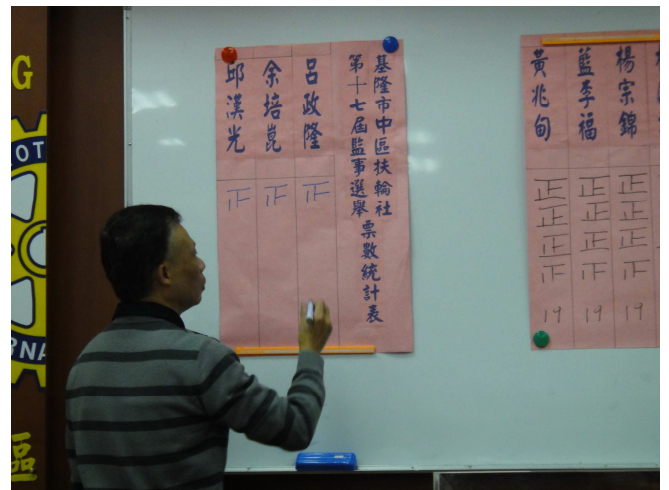 基隆市中區扶輪社
第十七屆監事選舉
票數統計表
呂政隆
余培崑
邱漢光
楊宗錦
正正正
19
藍李福
正正正
19
黃兆甸
正正正
19
G
OT
RNA
區